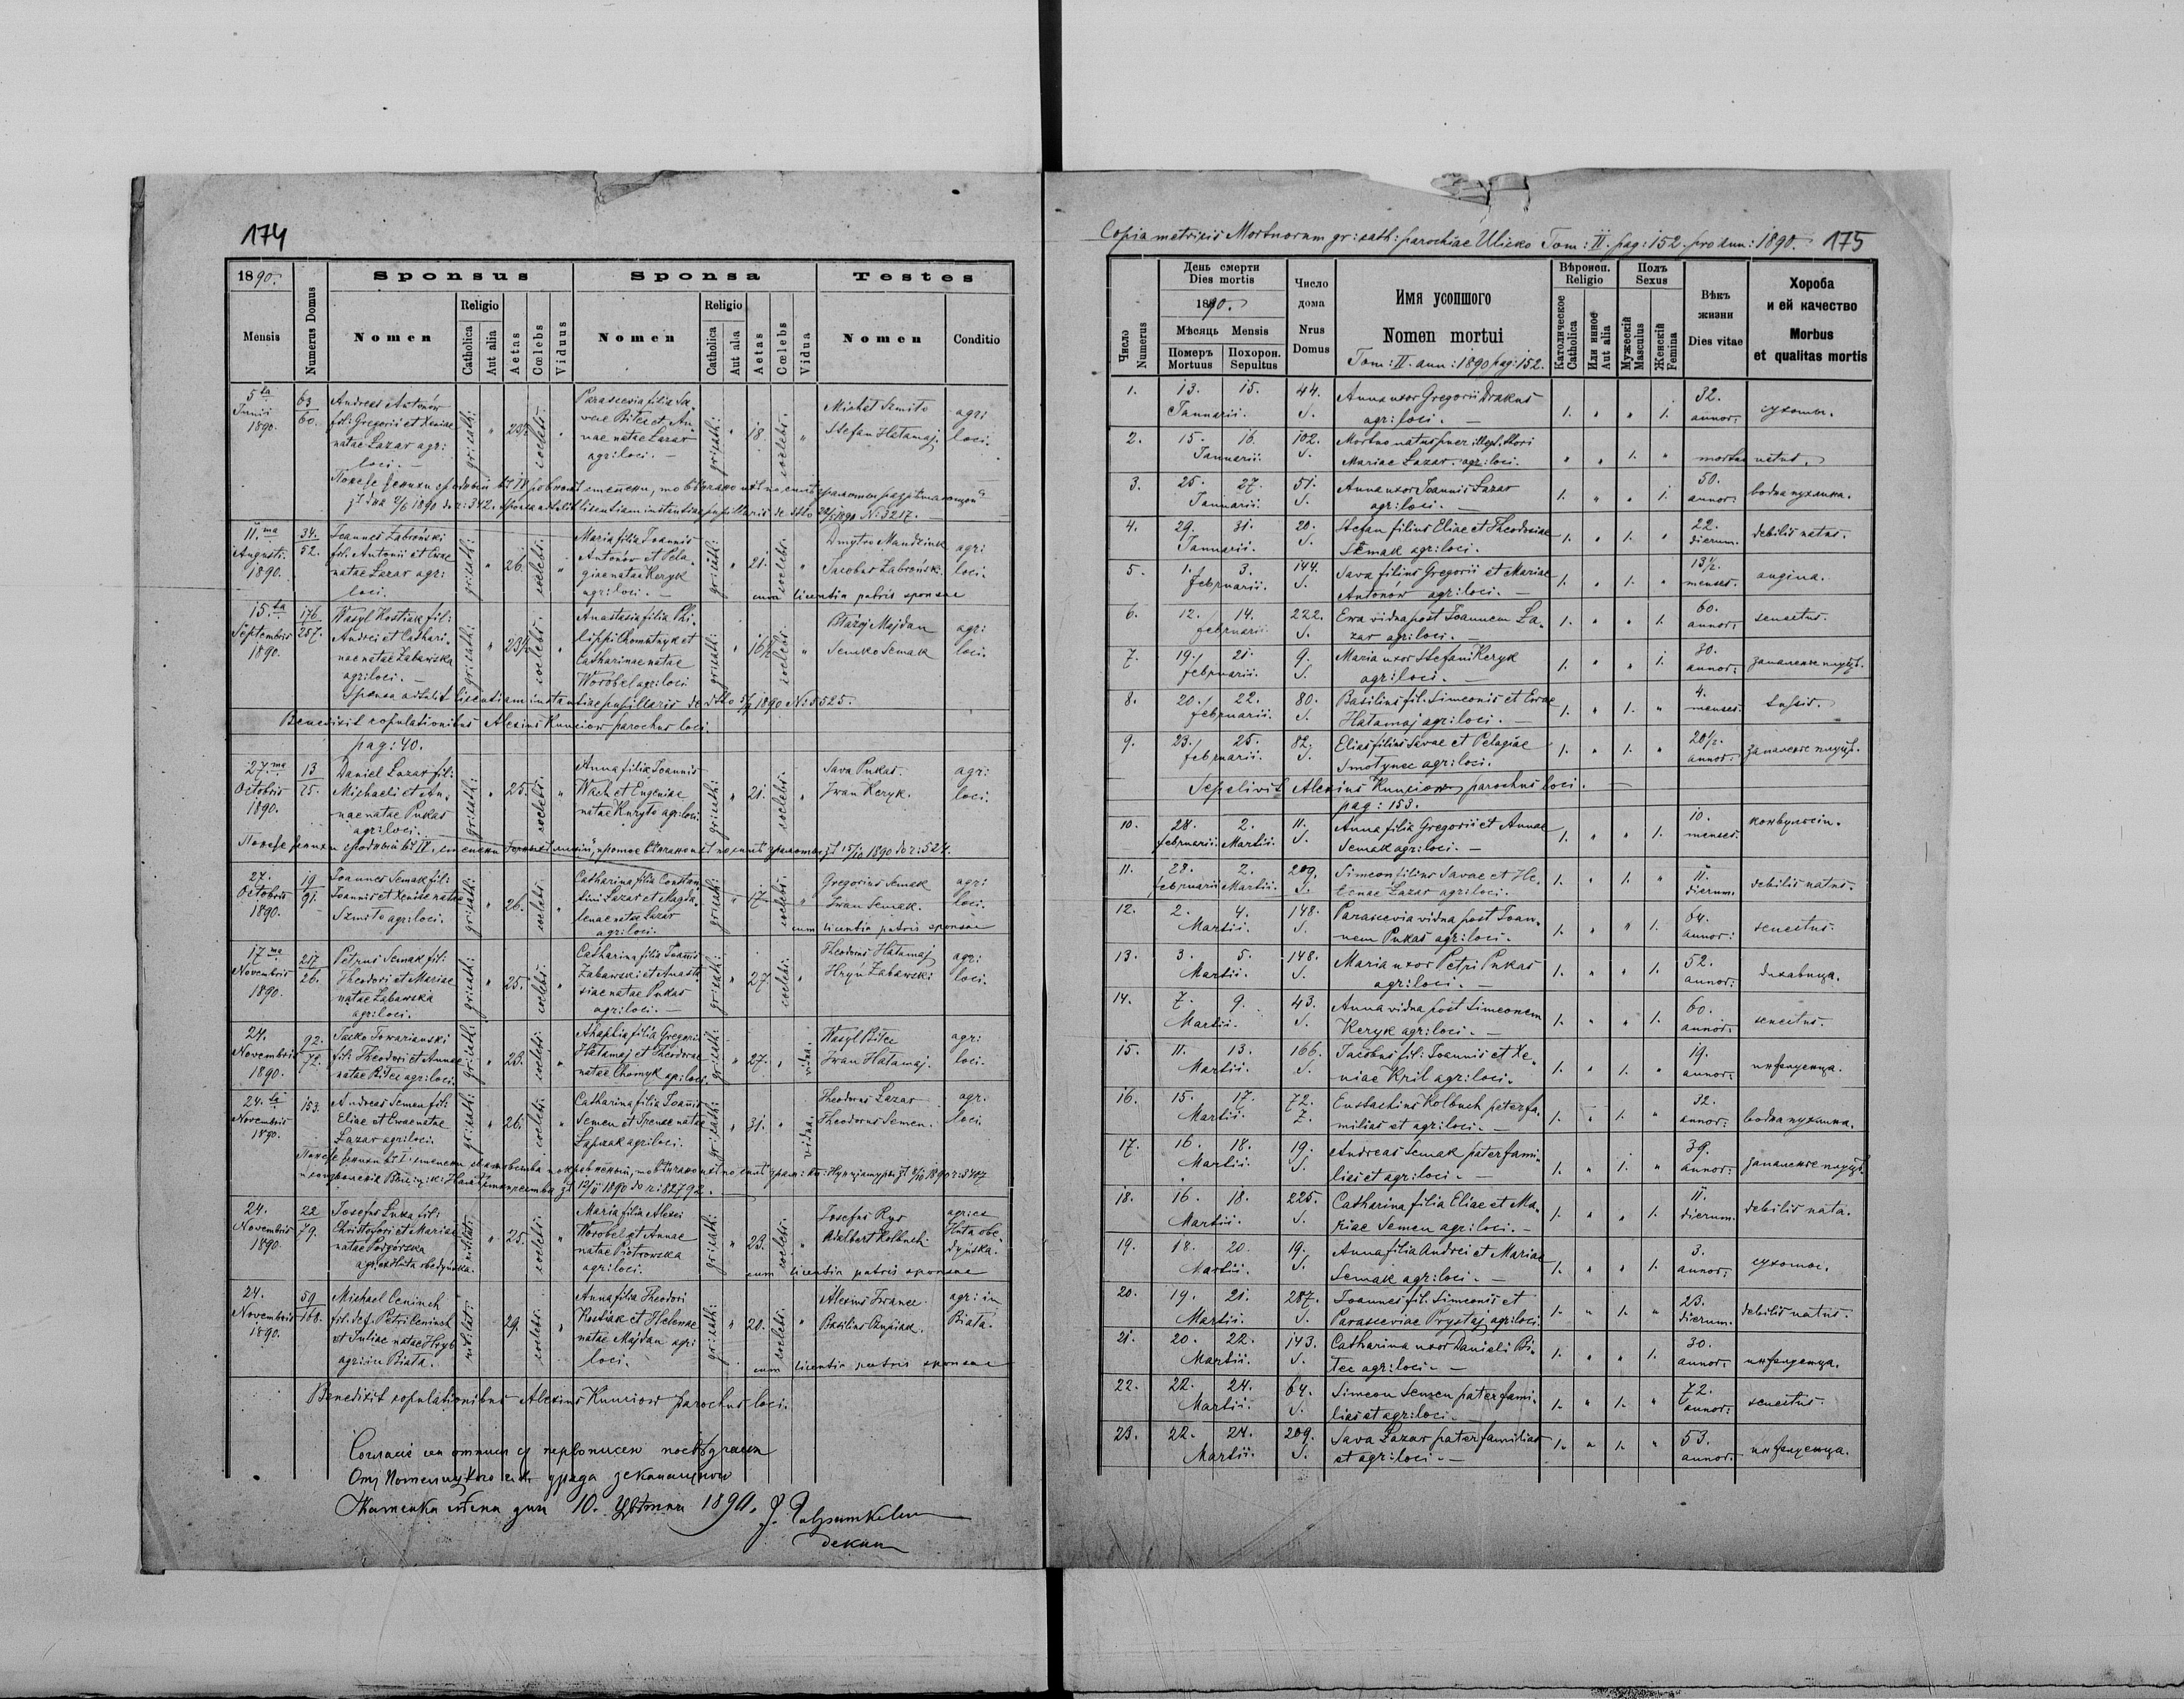 174
1890.
Mensis
Numerus Domus
Sponsus
Nomen
Religio
Catholica
Aut alia
Aetas
Cœlebs
Viduus
Sponsa
Nomen
Religio
Catholica
Aut alia
Aetas
Cœlebs
Vidua
Testes
Nomen
Conditio
5ta
Junii
1890.
63
60.
Andreas Antonów
fil: Gregorii et Xeniae
natae Lazar agr:
loci. —
gr: cath:
coelebs.
Parascevia filia Sa-
vae Bilec et An-
nae natae Lazar
agr: loci. —
gr: cath:
18.
coelebs.
Michał Szmito
Stefan Hatamaj
agr:
loci.
11.ma
Augusti.
1890.
34.
52.
Joannes Zabroński
fil. Antonii et Evae
natae Lazar agr:
loci.
gr: cath:
26.
coelebs.
Maria filia Joannis
Antonów et Pela-
giae natae Keryk
agr: loci. —
gr: cath:
21.
coelebs.
Dmytro Mandziuk
Jacobus Zabroński.
agr:
loci.
cum licentia patris sponsae
15.ta
Septembris
1890.
176.
257.
Wasyl Kostiak fil:
Andrei et Cathari-
nae natae Zabawska
agr: loci. —
gr: cath:
23½
coelebs.
Anastasia filia Phi-
lippi Chomutnyk et
Catharinae natae
Worobel agr: loci
gr: cath:
16½
coelebs.
Błażej Majdan
Semko Semak
agr:
loci.
Sponsa attulit licentiam instantiae pupillaris de dtto 5/9 1890 No: 5525.
Benedixit copulationibus Alexius Kunciow parochus loci.
pag: 40.
27.ma
Octobris
1890.
13
75.
Daniel Lazar fil:
Michaeli et An-
nae natae Pukas
agr: loci.
gr: cath:
25.
coelebs.
Anna filia Joannis
Wach et Eugeniae
natae Kuryło agr: loci.
gr: cath:
21.
coelebs.
Sava Pukas.
Iwan Keryk.
agr:
loci.
27.
Octobris
1890.
19
91.
Joannes Semak fil:
Joannis et Xeniae natae
Szmito agr: loci.
gr: cath:
26.
coelebs.
Catharina filia Constan-
tini Lazar et Magda-
lenae natae Lazar
agr: loci.
gr: cath:
17.
coelebs.
Gregorius Semak
Iwan Semak.
agr:
loci.
cum licentia patris sponsae
17ma
Novembris
1890.
217
26.
Petrus Semak fil:
Theodori et Mariae
natae Zabawska
agr: loci.
gr: cath:
25.
coelebs.
Catharina filia Joannis
Zabawski et Anasta-
siae natae Pukas
agr: loci. —
gr: cath:
27.
coelebs.
Theodorus Hatamaj
Hryń Zabawski
agr:
loci.
24.
Novembris
1890.
92.
72.
Jacko Towarianski
fil: Theodori et Annae
natae Bilec agr: loci.
gr: cath:
23.
coelebs.
Ahaphia filia Gregorii
Hatamaj et Theodorae
natae Chomyk agr: loci.
gr: cath:
27.
vidua.
Wasyl Bilec
Iwan Hatamaj.
agr:
loci.
24.ta
Novembris
1890.
153.
Andreas Semen fil:
Eliae et Evae natae
Lazar agr: loci.
gr: cath:
26.
coelebs.
Catharina filia Joannis
Semen et Irenae natae
Łapczak agr: loci.
gr: cath:
31.
vidua.
Theodorus Lazar
Theodorus Semen.
agr.
loci.
24.
Novembris
1890.
22
79.
Josefus Luza fil:
Christofori et Mariae
natae Podgórska
agr: ex Huta obedyńska.
rit: lat:
25.
coelebs.
Maria filia Alexei
Worobel et Annae
natae Piotrowska
agr: loci.
gr: cath:
23.
coelebs.
Josefus Rys
Adalbert Kolbuch
agr: ex
Huta obe-
dyńska.
cum licentia patris sponsae
24.
Novembris
1890.
59
168.
Michael Ceniuch
fil: def. Petri Ceniuch
et Juliae natae Hryb
agr: in Biała.
rit: lat:
29.
coelebs.
Anna filia Theodori
Kostiak et Helenae
natae Majdan agr:
loci.
gr: cath:
20.
coelebs.
Alexius Iwanec
Basilius Czupiak.
agr: in
Biała.
cum licentia patris sponsae
Benedixit copulationibus Alexius Kunciow parochus loci.
10. 1891.
декан
Copia metricis Mortuorum gr: cath: parochiae Ulicko Tom: II. pag: 152. pro ann: 1890. 175
Число
Numerus
День смерти
Dies mortis
1890.
Мѣсяць Mensis
Померъ
Mortuus
Похорон.
Sepultus
Число
дома
Nrus
Domus
Имя усопшого
Nomen mortui
Tom: II. ann: 1890 pag: 152.
Вѣроисп.
Religio
Католическое
Catholica
Или инное
Aut alia
Полъ
Sexus
Мужескій
Masculus
Женскій
Femina
Вѣкъ
жизни
Dies vitae
Хороба
и ей качество
Morbus
et qualitas mortis
1. 13. 15. 44. Anna uxor Gregorii Drakus 32.
Januarii. S. agr: loci. — 1. " " 1. annor: сухоты.
2. 15. 16. 102. Mortuo natus puer illegit. thori
Januarii. S. Mariae Lazar. agr: loci. " " 1. " mortuo natus.
3. 25. 27. 51. Anna uxor Joannis Lazar 50.
Januarii. S. agr: loci. — 1. " " 1. annor: водна пухлина.
4. 29. 31. 20. Stefan filius Eliae et Theodosiae 22.
Januarii. S. Semak agr: loci. 1. " 1. " dierum. debilis natus.
5. 1. 3. 144. Sava filius Gregorii et Mariae 13½.
februarii. S. Antonów agr: loci. — 1. " 1. " menses. angina.
6. 12. 14. 222. Ewa vidua post Joannem La- 60.
februarii. S. zar agr: loci. — 1. " " 1. annor: senectus.
7. 19. 21. 9. Maria uxor Stefani Keryk 30.
februarii. S. agr: loci. — 1. " " 1. annor: запаленье плуць.
8. 20. 22. 80. Basilius fil. Simeonis et Evae 4.
februarii. S. Hatamaj agr: loci. — 1. " 1. " menses. tussis.
9. 23. 25. 82. Elias filius Savae et Pelagiae 20½.
februarii. S. Smotynec agr: loci. 1. " 1. " annor: запаленье плуць.
Sepelivit Alexius Kunciow parochus loci.
pag: 153.
10. 28. 2. 11. Anna filia Gregorii et Annae 10.
februarii. Martii. S. Semak agr: loci. — 1. " " 1. menses. конвульсіи.
11. 28. 2. 209. Simeon filius Savae et He- 11.
februarii Martii. S. lenae Lazar agr: loci. 1. " 1. " dierum. debilis natus.
12. 2. 4. 148. Parascevia vidua post Joan- 64.
Martii. S. nem Pukas agr: loci. 1. " " 1. annor: senectus.
13. 3. 5. 148. Maria uxor Petri Pukas 52.
Martii. S. agr: loci. — 1. " " 1. annor: дихавица.
14. 7. 9. 43. Anna vidua post Simeonem 60.
Martii. S. Keryk agr: loci. — 1. " " 1. annor: senectus.
15. 11. 13. 166. Jacobus fil: Joannis et Xe- 19.
Martii. S. niae Kril agr: loci. 1. " 1. " annor: инфлуенца.
16. 15. 17. 72. Eustachius Kolbuch paterfa- 32.
Martii. 7. milias et agr: loci. — 1. " 1. " annor: водна пухлина.
17. 16. 18. 19. Andreas Semak paterfami- 39.
Martii. S. lias et agr: loci. — 1. " 1. " annor: запаленье плуць.
18. 16. 18. 225. Catharina filia Eliae et Ma- 11.
Martii. S. riae Semen agr: loci. — 1. " " 1. dierum. debilis nata.
19. 18. 20. 19. Anna filia Andrei et Mariae 3.
Martii. S. Semak agr: loci. — 1. " " 1. annor:
20. 19. 21. 287. Joannes fil. Simeonis et 23.
Martii. S. Parasceviae Prystaj agr: loci. 1. " 1. " dierum. debilis natus.
21. 20. 22. 143. Catharina uxor Danieli Bi- 30.
Martii. S. lec agr: loci. — 1. " " 1. annor: инфлуенца.
22. 22. 24. 64. Simeon Semen paterfami- 72.
Martii. S. lias et agr: loci. — 1. " 1. " annor: senectus.
23. 22. 24. 209. Sava Lazar paterfamilias 53.
Martii. S. et agr: loci. — 1. " 1. " annor: инфлуенца.